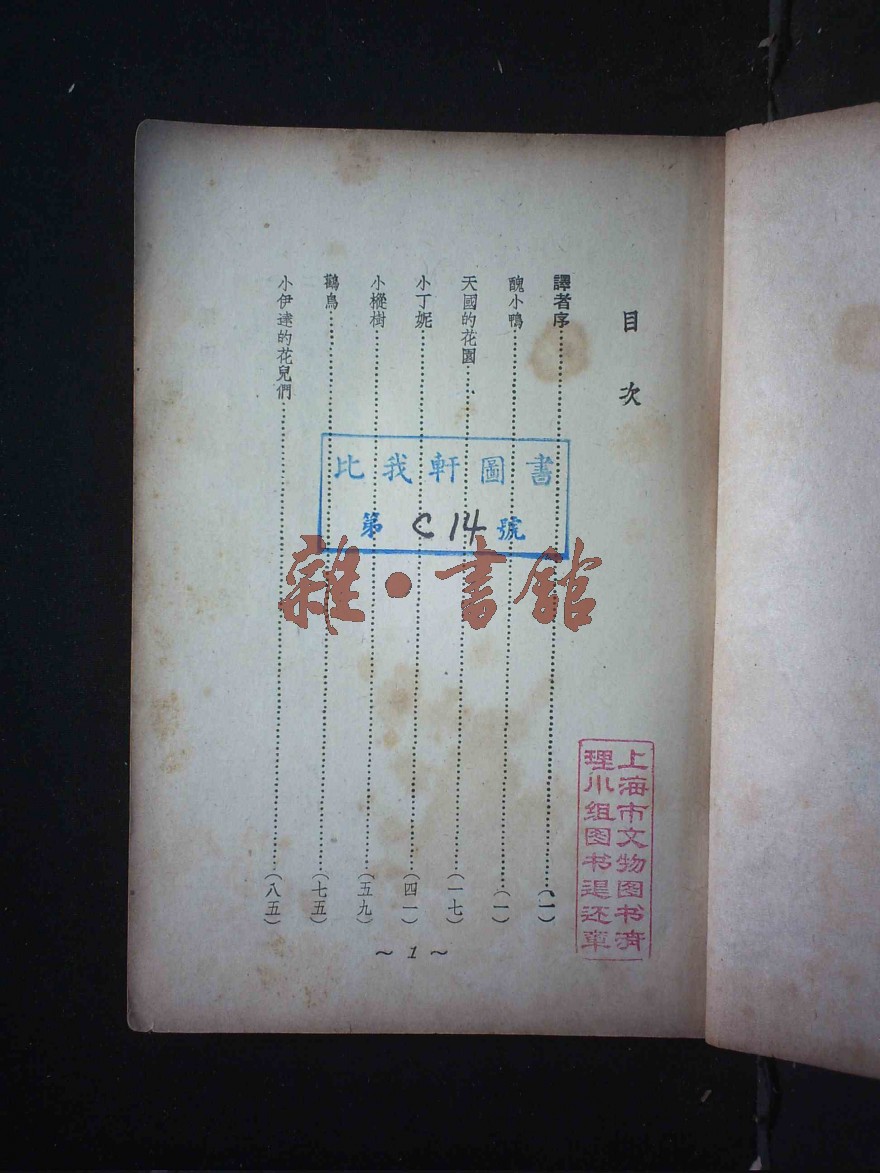 目次
譯者序……(一)
醜小鴨……(一)
天國的花園……(一七)
小丁妮……(四一)
小樅樹……(五九)
鸛鳥……(七五)
小伊達的花兒們……(八五)
~ 1 ~
比我軒圖書
第 C 14 號
雜·書館
上海市文物图书清
理小组图书退还章